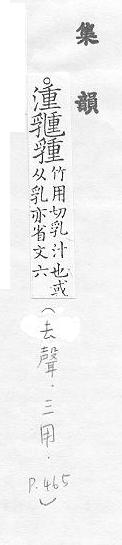 集韻
○湩
竹用切乳汁也或
从乳亦省文六
(去聲．三用．P.465)